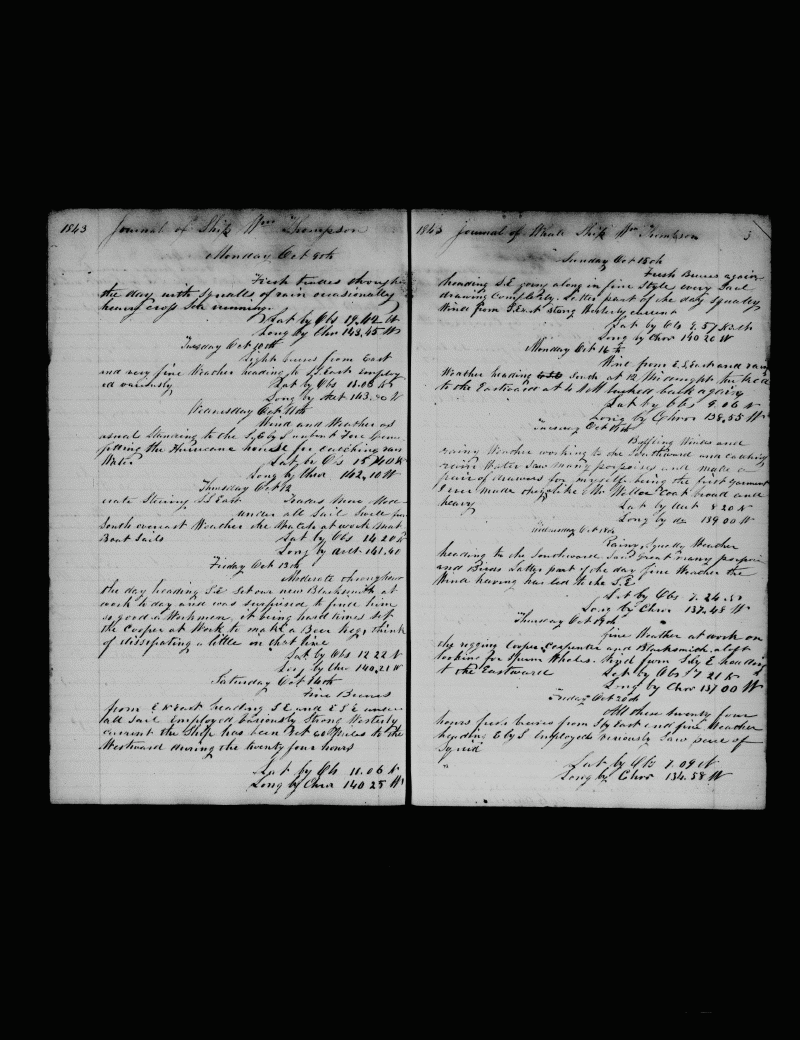 1843 Journal of Ship Wm Thompson
Monday Oct 9th
Fresh trades through
the day with squalls of rain occasionally
heavy cross Sea running
Lat by Obs 19.42 N
Long by Chro 143.45 W
Tuesday Oct 10th
Light breezes from East
and very fine Weather heading to East employ
ed variously Lat by Obs
Long by 143. W
Wednesday Oct 11th
Wind and Weather as
usual Standing to the
fitting the Hurricane house for catching rain
Water Lat by Obs N
Long by Chro 142,10 W
Thursday Oct 12
Trades More Mode
rate Steering S.S East under all Sail Swell from
South overcast Weather the Watch at work Mat
Boat Sails Lat by Obs 14.20 N
Long by 141.40
Friday Oct 13th
Moderate throughout
the day heading S.E Set our new Blacksmith at
work to day and was surprised to finde him
so good a Workman, it being hard times set
the Cooper at Work to make a Beer keg think
of dissipating a little on that line
Lat by Obs 12 22 N
Long by Chro 140,21 W
Saturday Oct 14th
Fine Breezes
from E N East heading S E and E S E under
all Sail Employed Variously Strong Westerly
current the Ship has been Set 60 Miles to the
Westward during the twenty four hours
Lat by Ob 11.06 N
Long by Chro 140 25 W
1843 Journal of Whale Ship Wm Tompson 3
Sunday Oct 15th
Fresh Breezes again
heading S.E going along in fine Style every Sail
drawing Completely. Latter part of the day squaley
Wind from E strong Westerly current
Lat by Ob 9.57 North
Long by Chro 140 20 W
Monday Oct 16th
Wind from E.S.East and rainy
Weather heading South at 12 Midnight tacked
to the Eastward at 4 AM tacked back again
Lat by Obs 9.06 N
Long by Chro 138,55 W
Tuesday Oct 17th
Baffling Winds and
rainy Weather working to the Southward and catching
rain Water Saw Many porpoises and make a
pair of drawers for myself being the first garment
I ever made Mr Coat broad and
heavy Lat by Act 8 20 N
Long by do 139 00 W
Wednesday Oct 18th
Rainy Squally Weather
heading to the Southward Saw great many porpoises
and Birds Latter part of the day fine Weather the
Wind having hauled to the S.E
Lat by Obs 7.24
Long by Chro 137.48 W
Thursday Oct 19th
fine Weather at work on
the rigging Cooper, Carpenter and Blacksmith. aloft
looking for Sperm Whales. Wind from S by E heading
to the Eastward Lat by Obs 7 21 N
Long by Chro 137 00 W
Friday Oct 20th
All these twenty four
hours fresh breezes from S by East and fine Weather
heading E by S Employed variously Saw piece of
Squid
Lat by Obs 7.09 N
Long by Chro 134.58 W